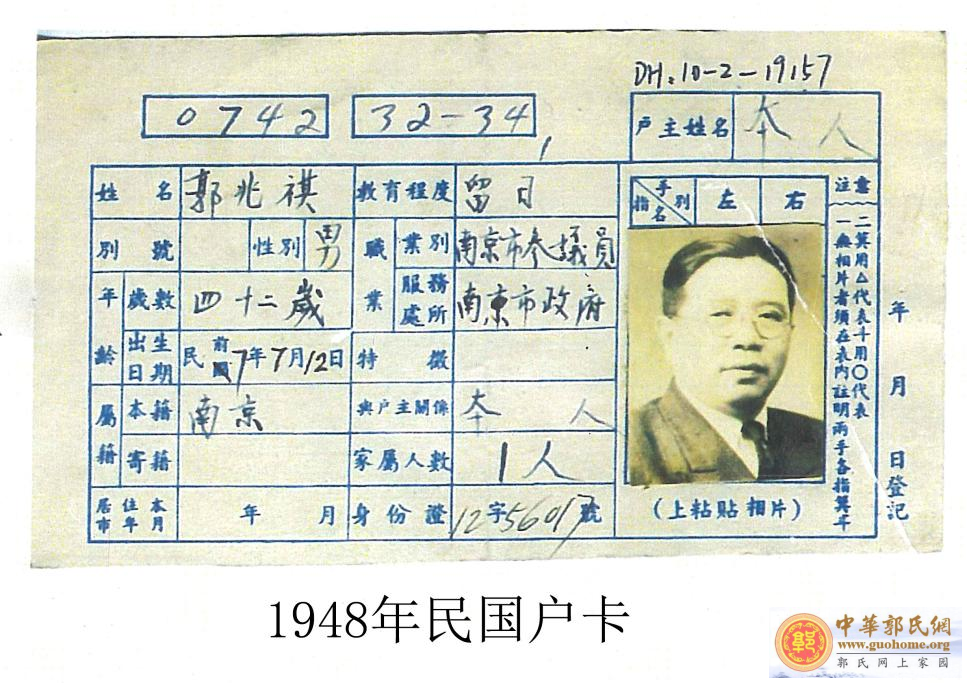 DH.10-2-19157
0742 32-34
户主姓名 本人
姓名 郭兆祺 教育程度 留日
別號 性別 男 職業 業別 南京市参議員
年齡 歲數 四十二歲 服務處所 南京市政府
出生日期 民前國7年7月12日 特徵
屬籍 本籍 南京 與戶主關係 本人
寄籍 家屬人數 1人
居住本市年月 年 月 身份證 12字56017號
手別 指名 左 右
(上粘貼相片)
注意
一無相片者須在表内註明兩手各指箕斗
二箕用△代表斗用〇代表
年 月 日登記
1948年民国户卡
中華郭氏網
www.guohome.org
郭氏网上家园